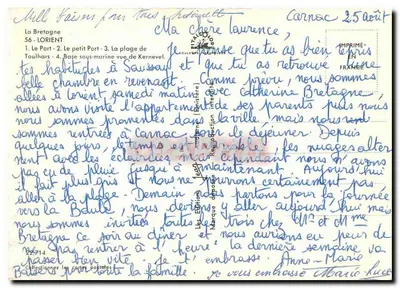 Mill baisers pour tous
Carnac, 25 août
La Bretagne
56 - LORIENT
1. Le Port - 2. Le petit Port - 3. La plage de
Toulhars - 4. Base sous-marine vue de Kernevel.
IMPRIMÉ EN FRANCE
Ma chère Laurence,
Je pense que tu as bien repris
tes habitudes à Saussay et que tu as retrouvé une
belle chambre en revenant. Comme prévu, nous sommes
allées à Lorient samedi matin avec Catherine Bretagne
nous avons visité l'appartement de ses parents puis nous
nous sommes promenées dans la ville, mais nous
sommes rentrées à Carnac pour le déjeuner. Depuis
quelques jours, le temps est trouble! les nuages alter
nent avec les éclaircies mais cependant nous n'avons
pas eu de pluie jusqu'à maintenant. Aujourd'hui
il fait plus gris et nous ne pourrons certainement pas
aller à la plage. Demain nous partons pour la journée
vers la Baule, nous devions y aller aujourd'hui mais
nous sommes invitées toutes les trois chez Mr et Mme
Bretagne ce soir au dîner et nous aurions eu peur de
ne pas rentrer à l'heure. La dernière semaine va
passer bien vite. Je t'embrasse. Anne-Marie
Baisers à toute la famille. Je vous embrasse Marie-Luce